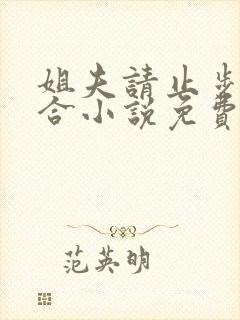 姐夫請止步
合小說免費
范英明